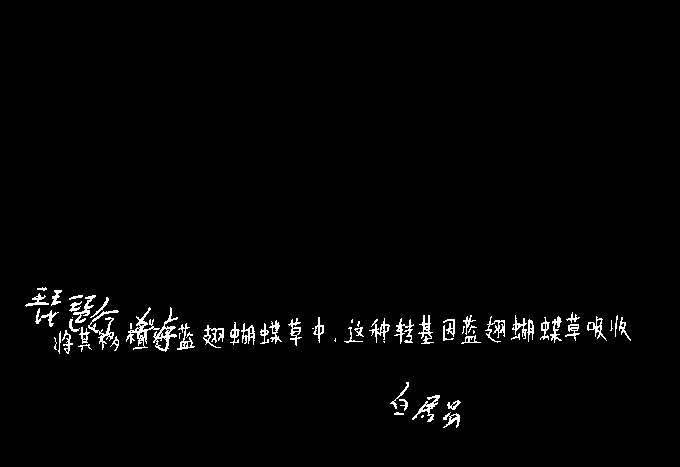 琵琶行
将其移植到蓝翅蝴蝶草中,这种转基因蓝翅蝴蝶草吸收
白居易